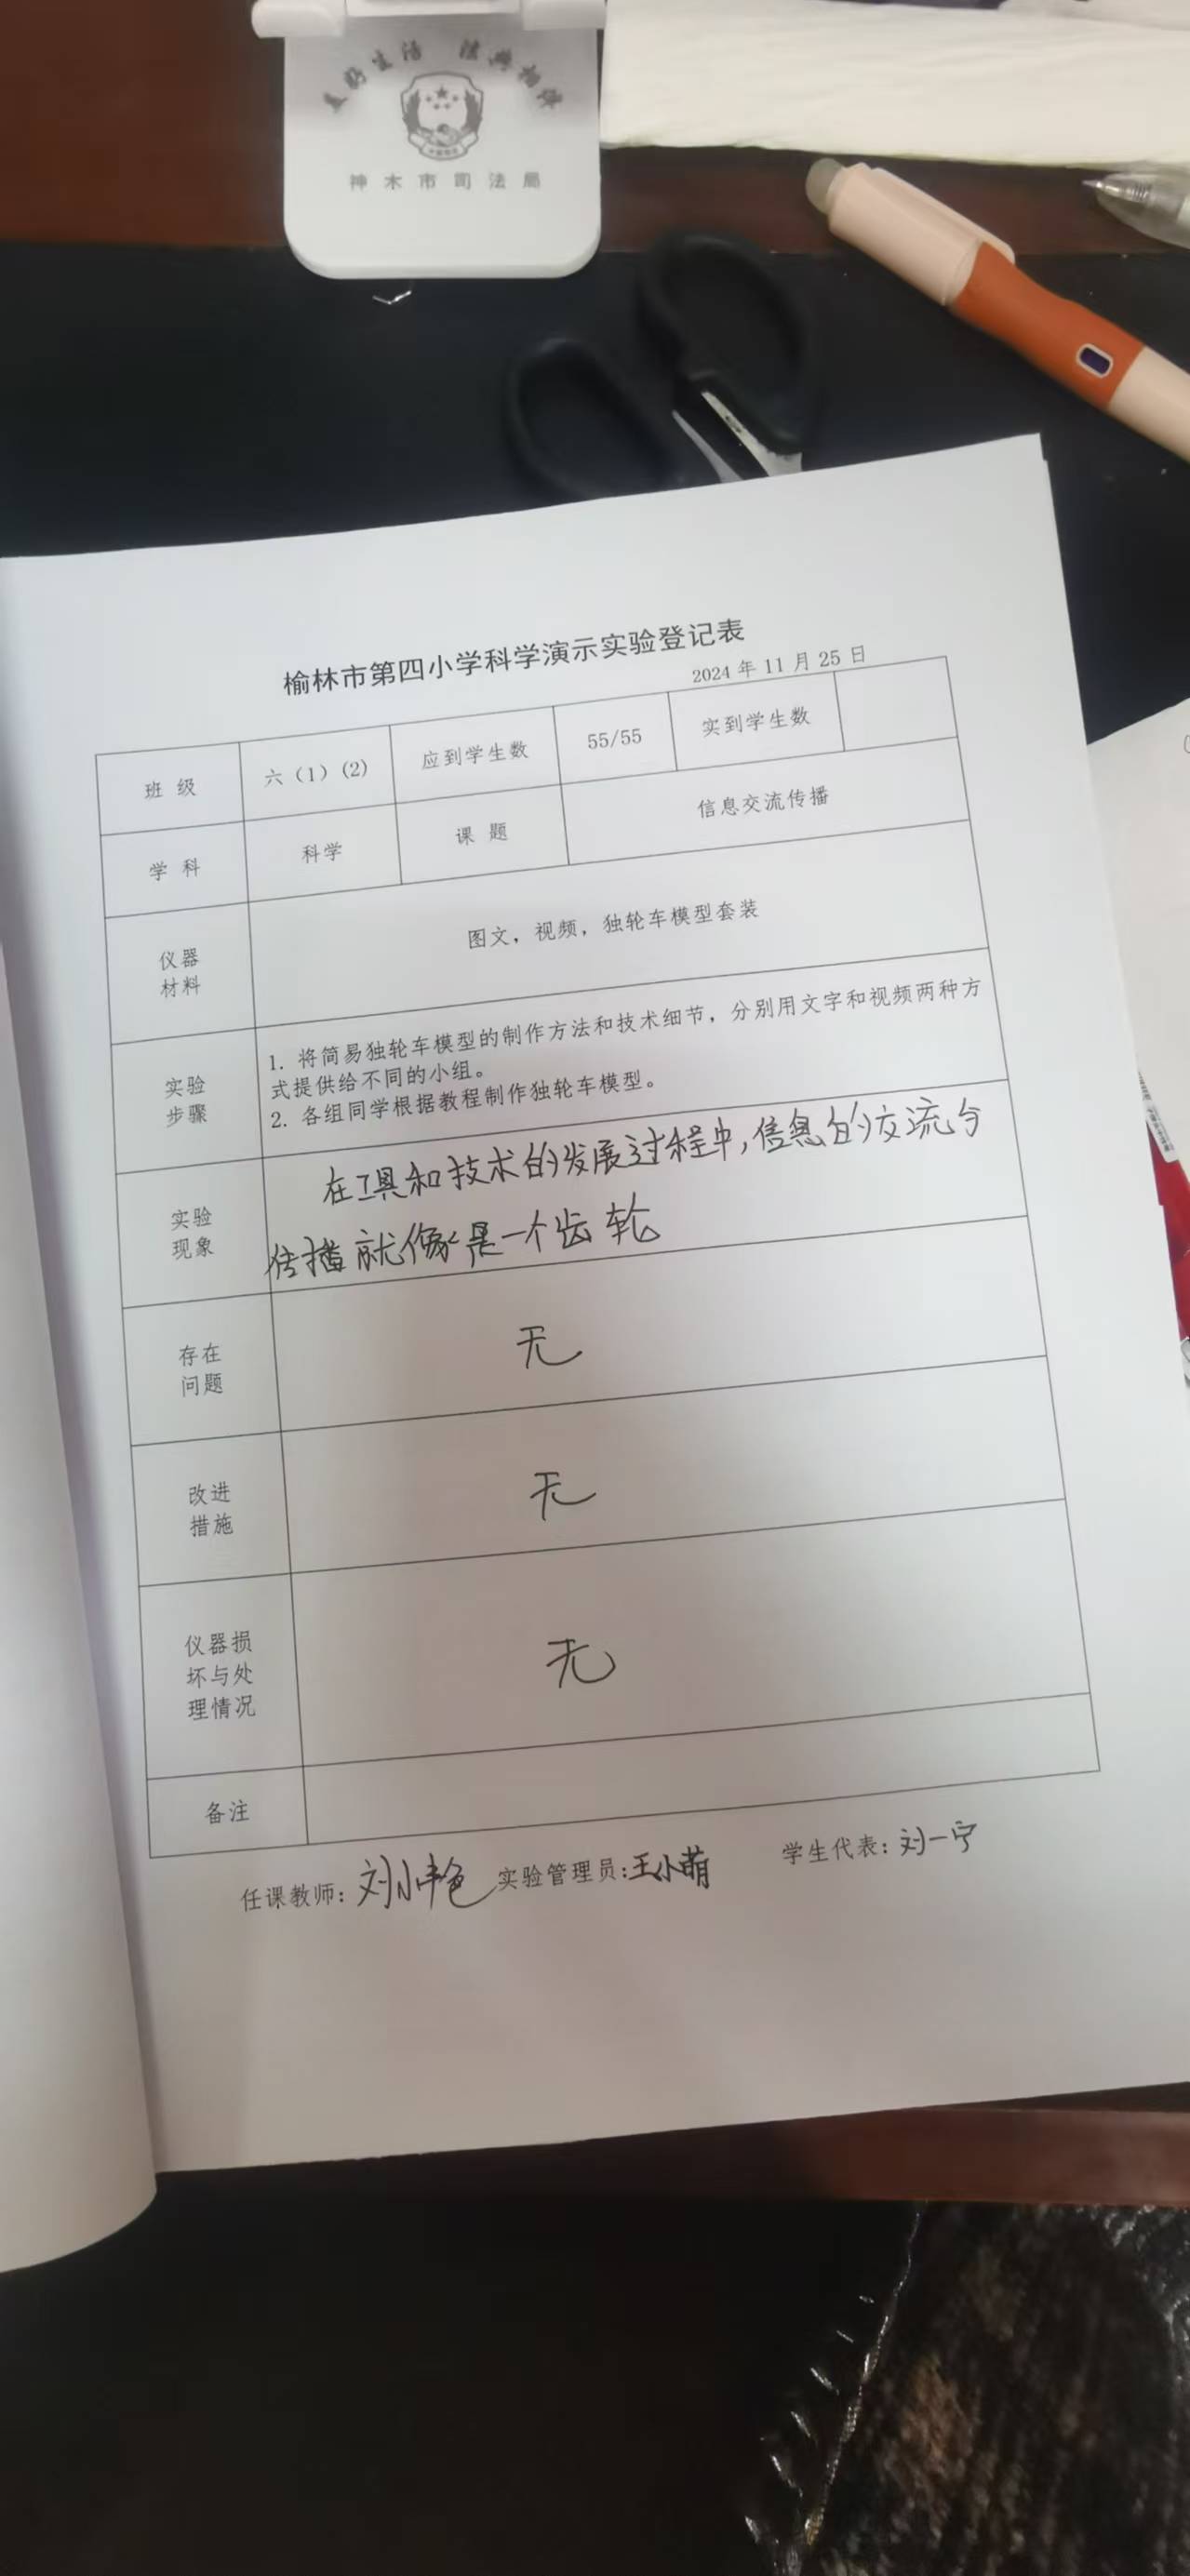 美好生活 法典相伴
神木市司法局
榆林市第四小学科学演示实验登记表
2024 年 11 月 25 日
班 级 六（1）(2) 应到学生数 55/55 实到学生数
学 科 科学 课 题 信息交流传播
仪器
材料
图文，视频，独轮车模型套装
实验
步骤
1. 将简易独轮车模型的制作方法和技术细节，分别用文字和视频两种方
式提供给不同的小组。
2. 各组同学根据教程制作独轮车模型。
实验
现象
在工具和技术的发展过程中,信息的交流与
传播就像是一个齿轮
存在
问题
无
改进
措施
无
仪器损
坏与处
理情况
无
备注
任课教师：刘小艳 实验管理员:王小萌 学生代表：刘一宁